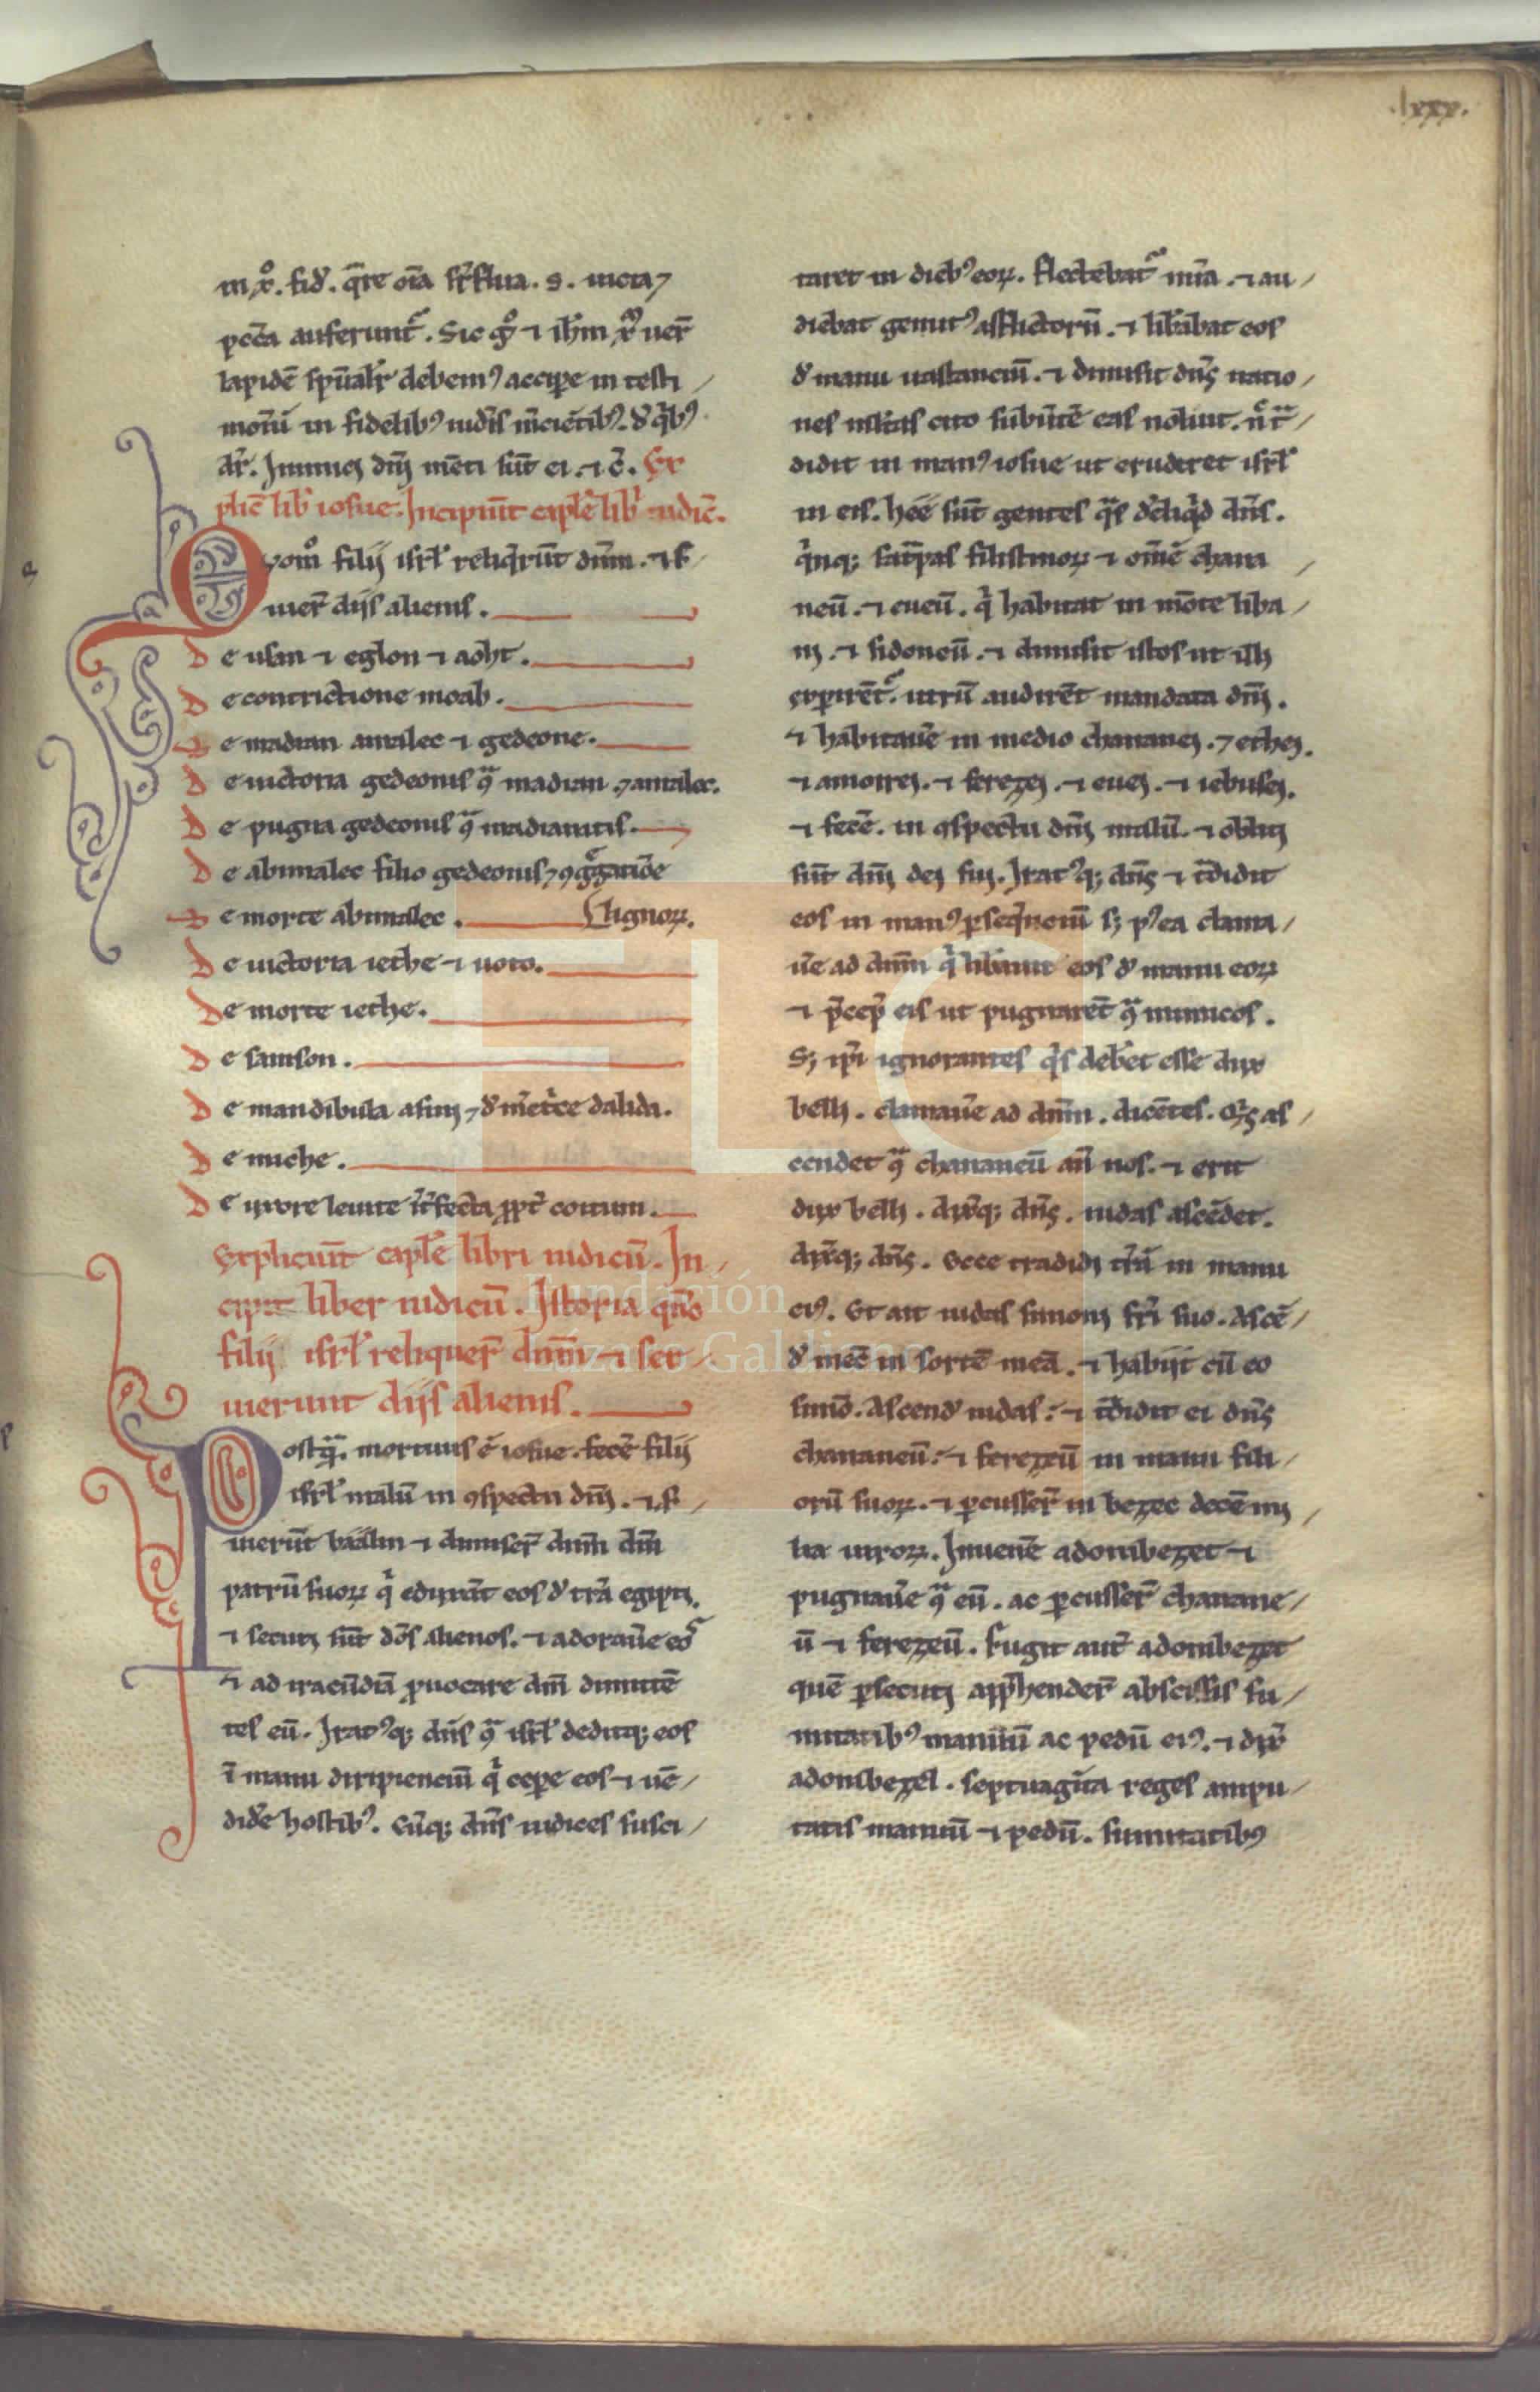 .lxxx.
in xº. fid'. q̄re oīa sr̄flua. s. uicia ⁊
pccā auferunt᷑. Sic gº ⁊ ihm xp̄m uer̄
lapidē sp̄ualr̄ debem⁹ accipe in testi
moniū in fidelib⁹ iudeis mēciētib⁹. d' qⁱb⁹
dr̄. Inimici dnī mēti sūt ei. ⁊ c̄. Ex
plic̄ lib' iosue. Incipiūt capl'e lib' iudic̄.
Qvomº filij isrl' reliqerūt dnm̄. ⁊ s
uier̄ dijs alienis.
De usan ⁊ eglon ⁊ aoht.
De contrictione moab.
De madian amalec ⁊ gedeone.
De uictoria gedeonis qª madian ⁊ amalec.
De pugna gedeonis qª madianitis.
De abimalec filio gedeonis ⁊ ꝯgregatiōe
De morte abimalec. lignoꝝ.
De uictoria iethe ⁊ uoto.
De morte iethe.
De samson.
De mandibula asini ⁊ d' mēt'ce dalida.
De miche.
De uxore leuite īt'fecta ꝓpt' coitum.
Explicuīt capl'e libri iudicū. In
cipit liber iudicū. Istoria qūo
filij isrl' reliquer̄ dnm̄ ⁊ ser
uierunt dijs alienis.
Postqª mortuus ē iosue. fecē filij
isrl' malū in ꝯspectu dnī. ⁊ s
uierūt baalin ⁊ dimiser̄ dnm̄ dm̄
patrū suoꝝ qⁱ eduxit eos d' trā egipti.
⁊ secuti sūt dōs alienos. ⁊ adorauē eos
⁊ ad iracūdiā ꝓuocare dm̄ dimittē
tes eū. Irat⁹q; dn̄s qª isrl' deditq; eos
ī manu diripienciū qⁱ cepe eos ⁊ uē
did'e hostib⁹. Cūq; dn̄s iudices susci
taret in dieb⁹ eoꝝ. flectebat᷑ mīa. ⁊ au
diebat gemit⁹ afflictorū. ⁊ lib'abat eos
d' manu uastanciū. ⁊ dimisit dn̄s natio
nes istas cito subutē eas noluit. n̄ t̄
didit in man⁹ iosue ut erudiret isrl'
in eis. hee sūt gentes qªs d'eliqⁱd dn̄s.
qⁱnq; sat̄pas filistinoꝝ ⁊ omē chana
neū. ⁊ eueū. qⁱ habitat in mōte liba
ni. ⁊ sidoneū. ⁊ dimisit istos ut illi
expirēt᷑. utrū audirēt mandata dnī.
⁊ habitauē in medio chananei. ⁊ ethei.
⁊ amorrei. ⁊ ferezei. ⁊ euei. ⁊ iebusei.
⁊ fecē. in ꝯspectu dnī malū. ⁊ obliti
sūt dnī dei sui. Irat⁹q; dn̄s ⁊ t̄didit
eos in man⁹ ꝑseqūenciū s; p⁹ea clama
uē ad dnm̄ qⁱ lib'auit eos d' manu eoꝝ
⁊ p̄cep̄ eis ut pugnarēt qª inimicos.
S; ip̄i ignorantes qⁱs deb'et esse dux
belli. clamauē ad dnm̄. dicētes. Qⁱs as
cendet qª chananeū añ nos. ⁊ erit
dux belli. dixitq; dn̄s. iudas ascēdet.
dixitq; dn̄s. Ecce tradidi t'rā in manu
ei⁹. Et ait iudas simoni fr̄i suo. Ascē
d' mecū in sortē meā. ⁊ habijt cū eo
simō. Ascend' iudas: ⁊ t̄didit ei dn̄s
chananeū: ⁊ ferezeū in manu fili
orū suoꝝ. ⁊ ꝑcusser̄ in bezec decē mi
lia uiroꝝ. Inuenē adonibezet ⁊
pugnauē qª eū. ac ꝑcusser̄ chanane
ū ⁊ ferezeū. Fugit aut' adonibezet
quē ꝑsecuti app̄hender̄ abscissis su
mitatib⁹ manuū ac pedū ei⁹. ⁊ dix̄
adonibezel. septuagīta reges ampu
tatis manuū ⁊ pedū. sumitatib⁹
FLG
Fundación
Lázaro Galdiano